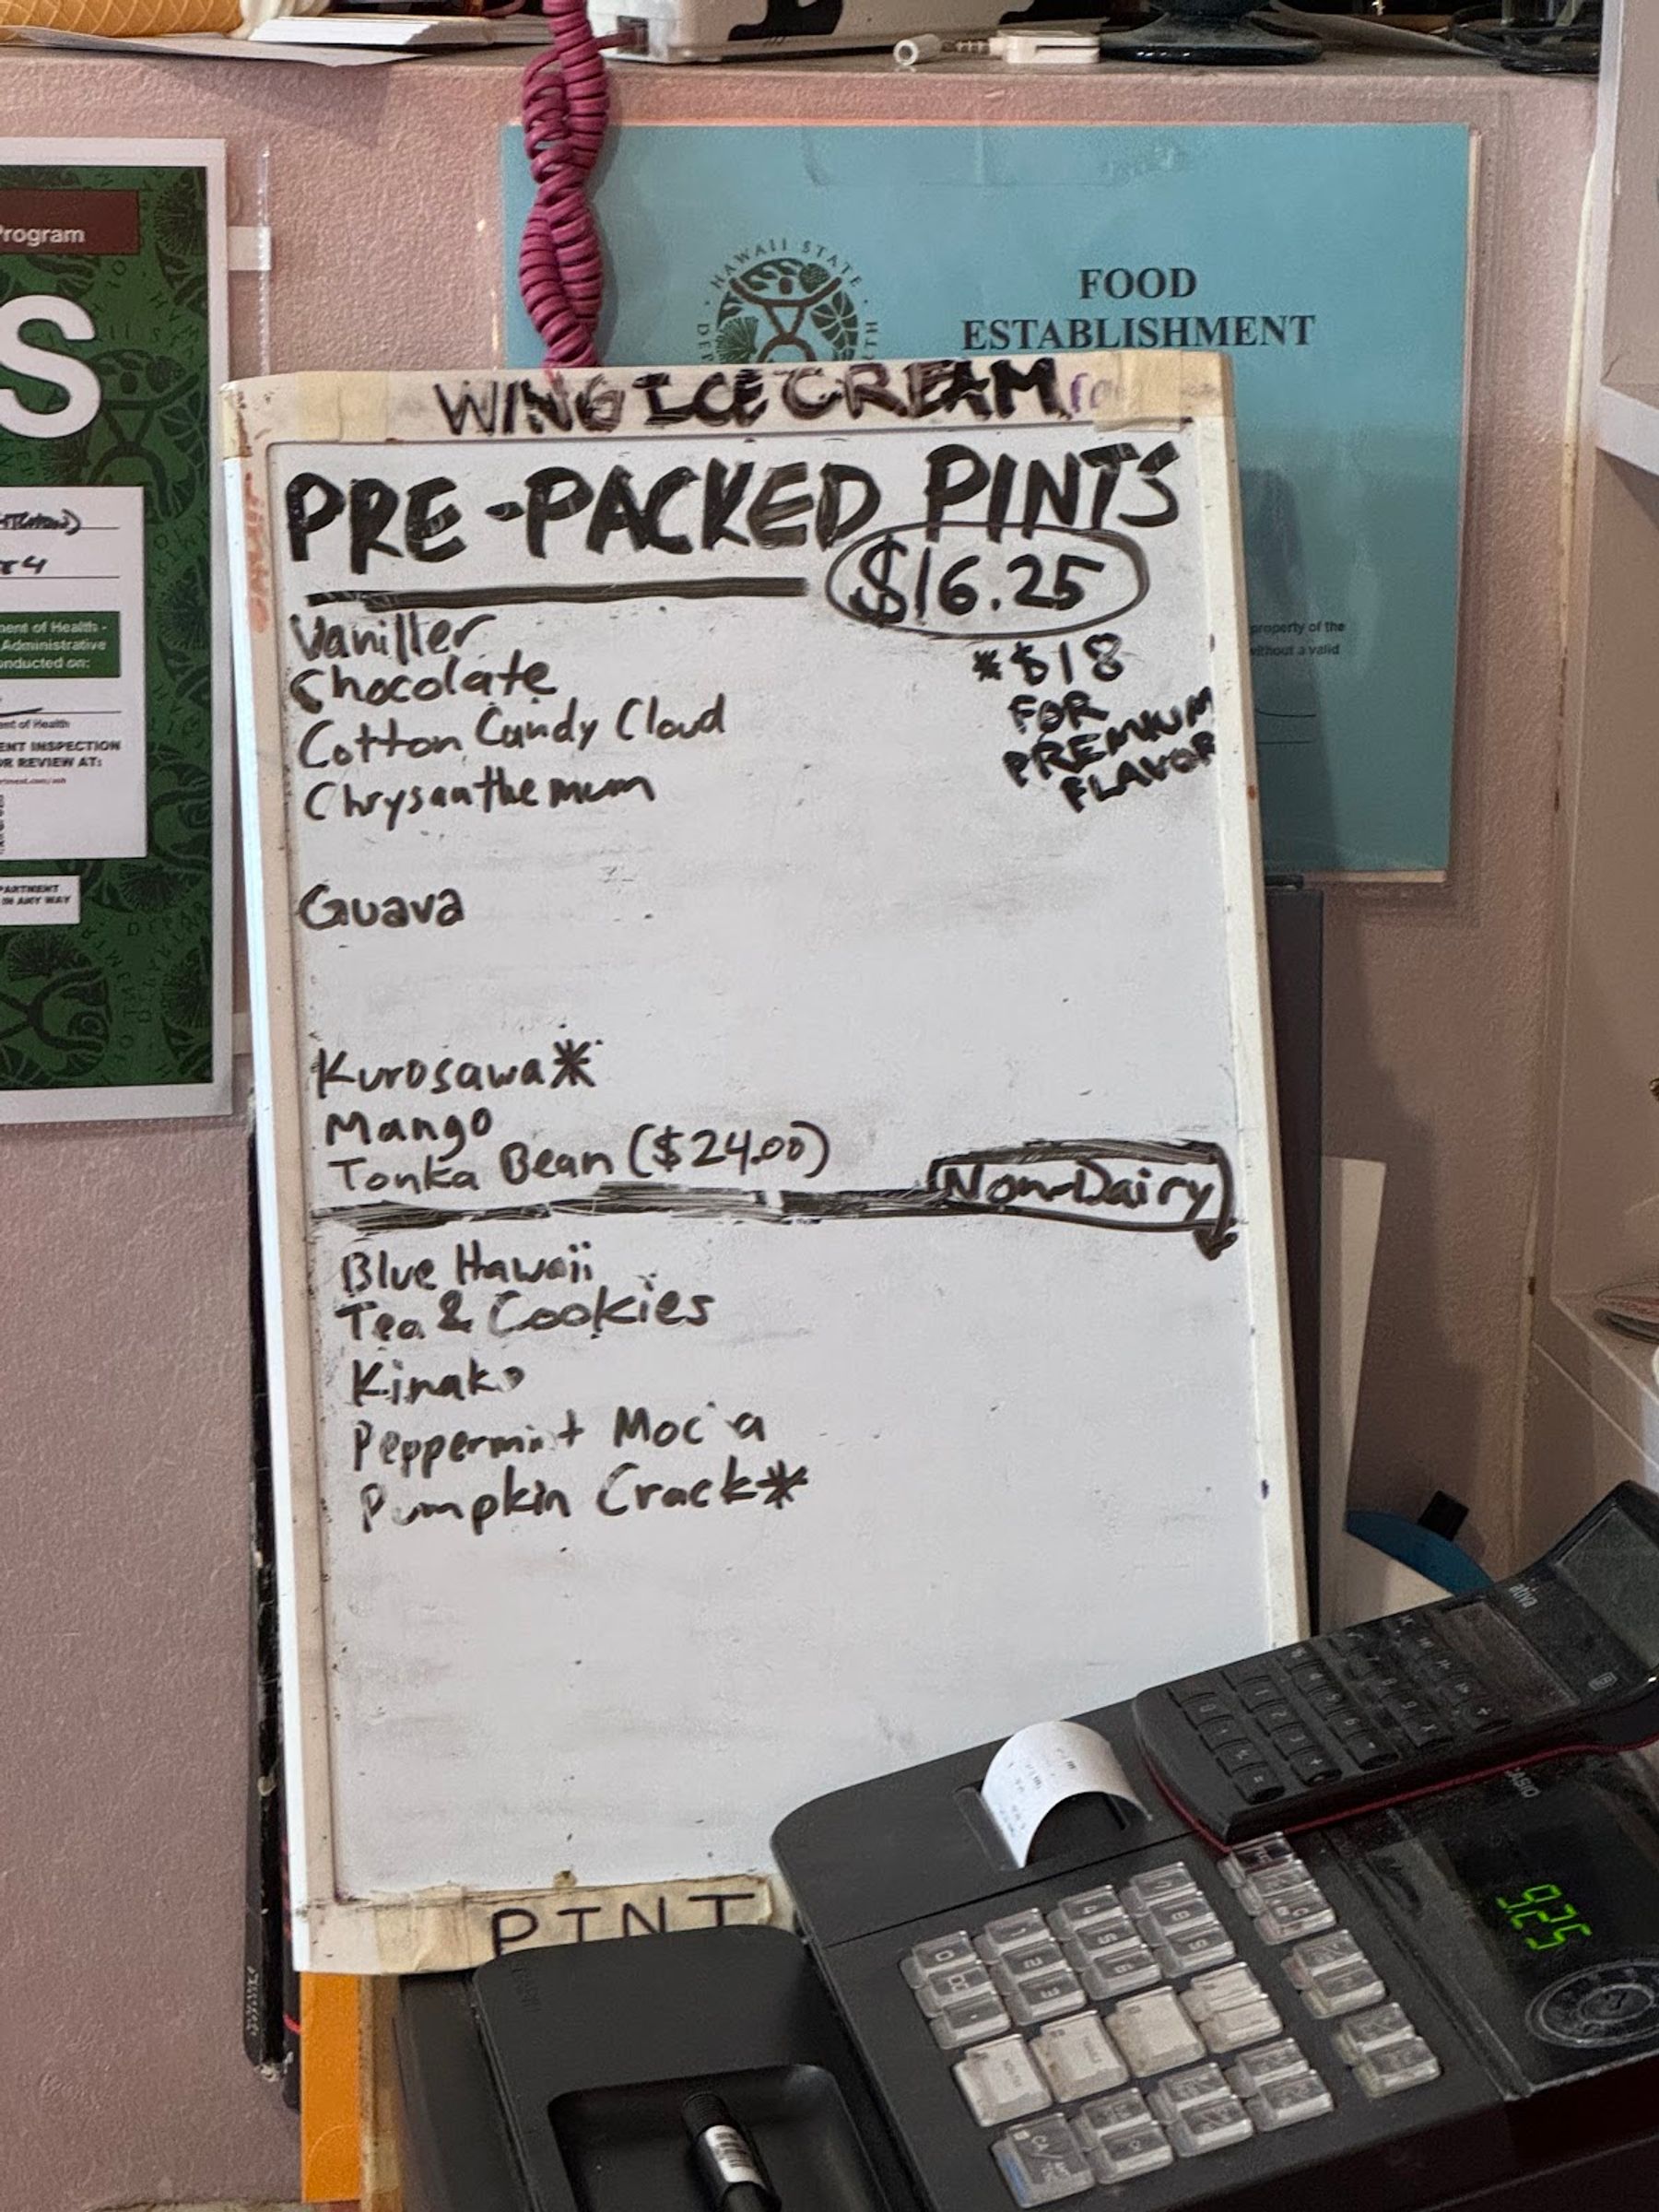 Program
S
HAWAII STATE
FOOD
ESTABLISHMENT
property of the
without a valid
ment of Health -
Administrative
onducted on:
ent of Health
ENT INSPECTION
OR REVIEW AT:
PARTMENT
IN ANY WAY
WING ICE CREAM
PRE-PACKED PINTS
$16.25
*$18
FOR
PREMIUM
FLAVOR
Vaniller
Chocolate
Cotton Candy Cloud
Chrysanthemum
Guava
Kurosawa*
Mango
Tonka Bean ($24.00)
Non-Dairy
Blue Hawaii
Tea & Cookies
Kinako
Peppermint Moc a
Pumpkin Crack*
PINT
ativa
CASIO
9.25